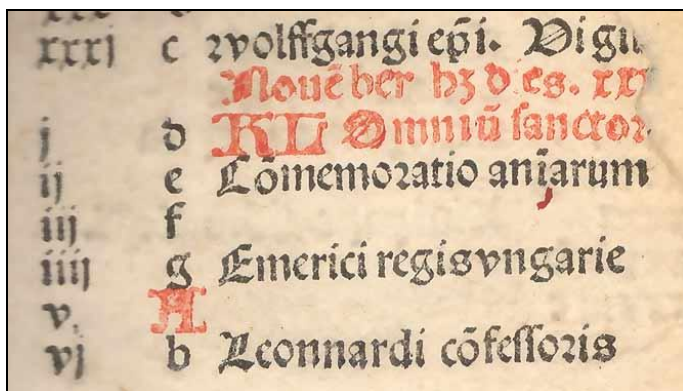 xxxj c wolffgangi ep̄i. Vigil
Nouēber hꝫ dies. xxx
j d KL Omniū sanctor
ij e Cōmemoratio anīarum
iij f
iiij g Emerici regis vngarie
v. A
vj b Leonnardi cōfessoris